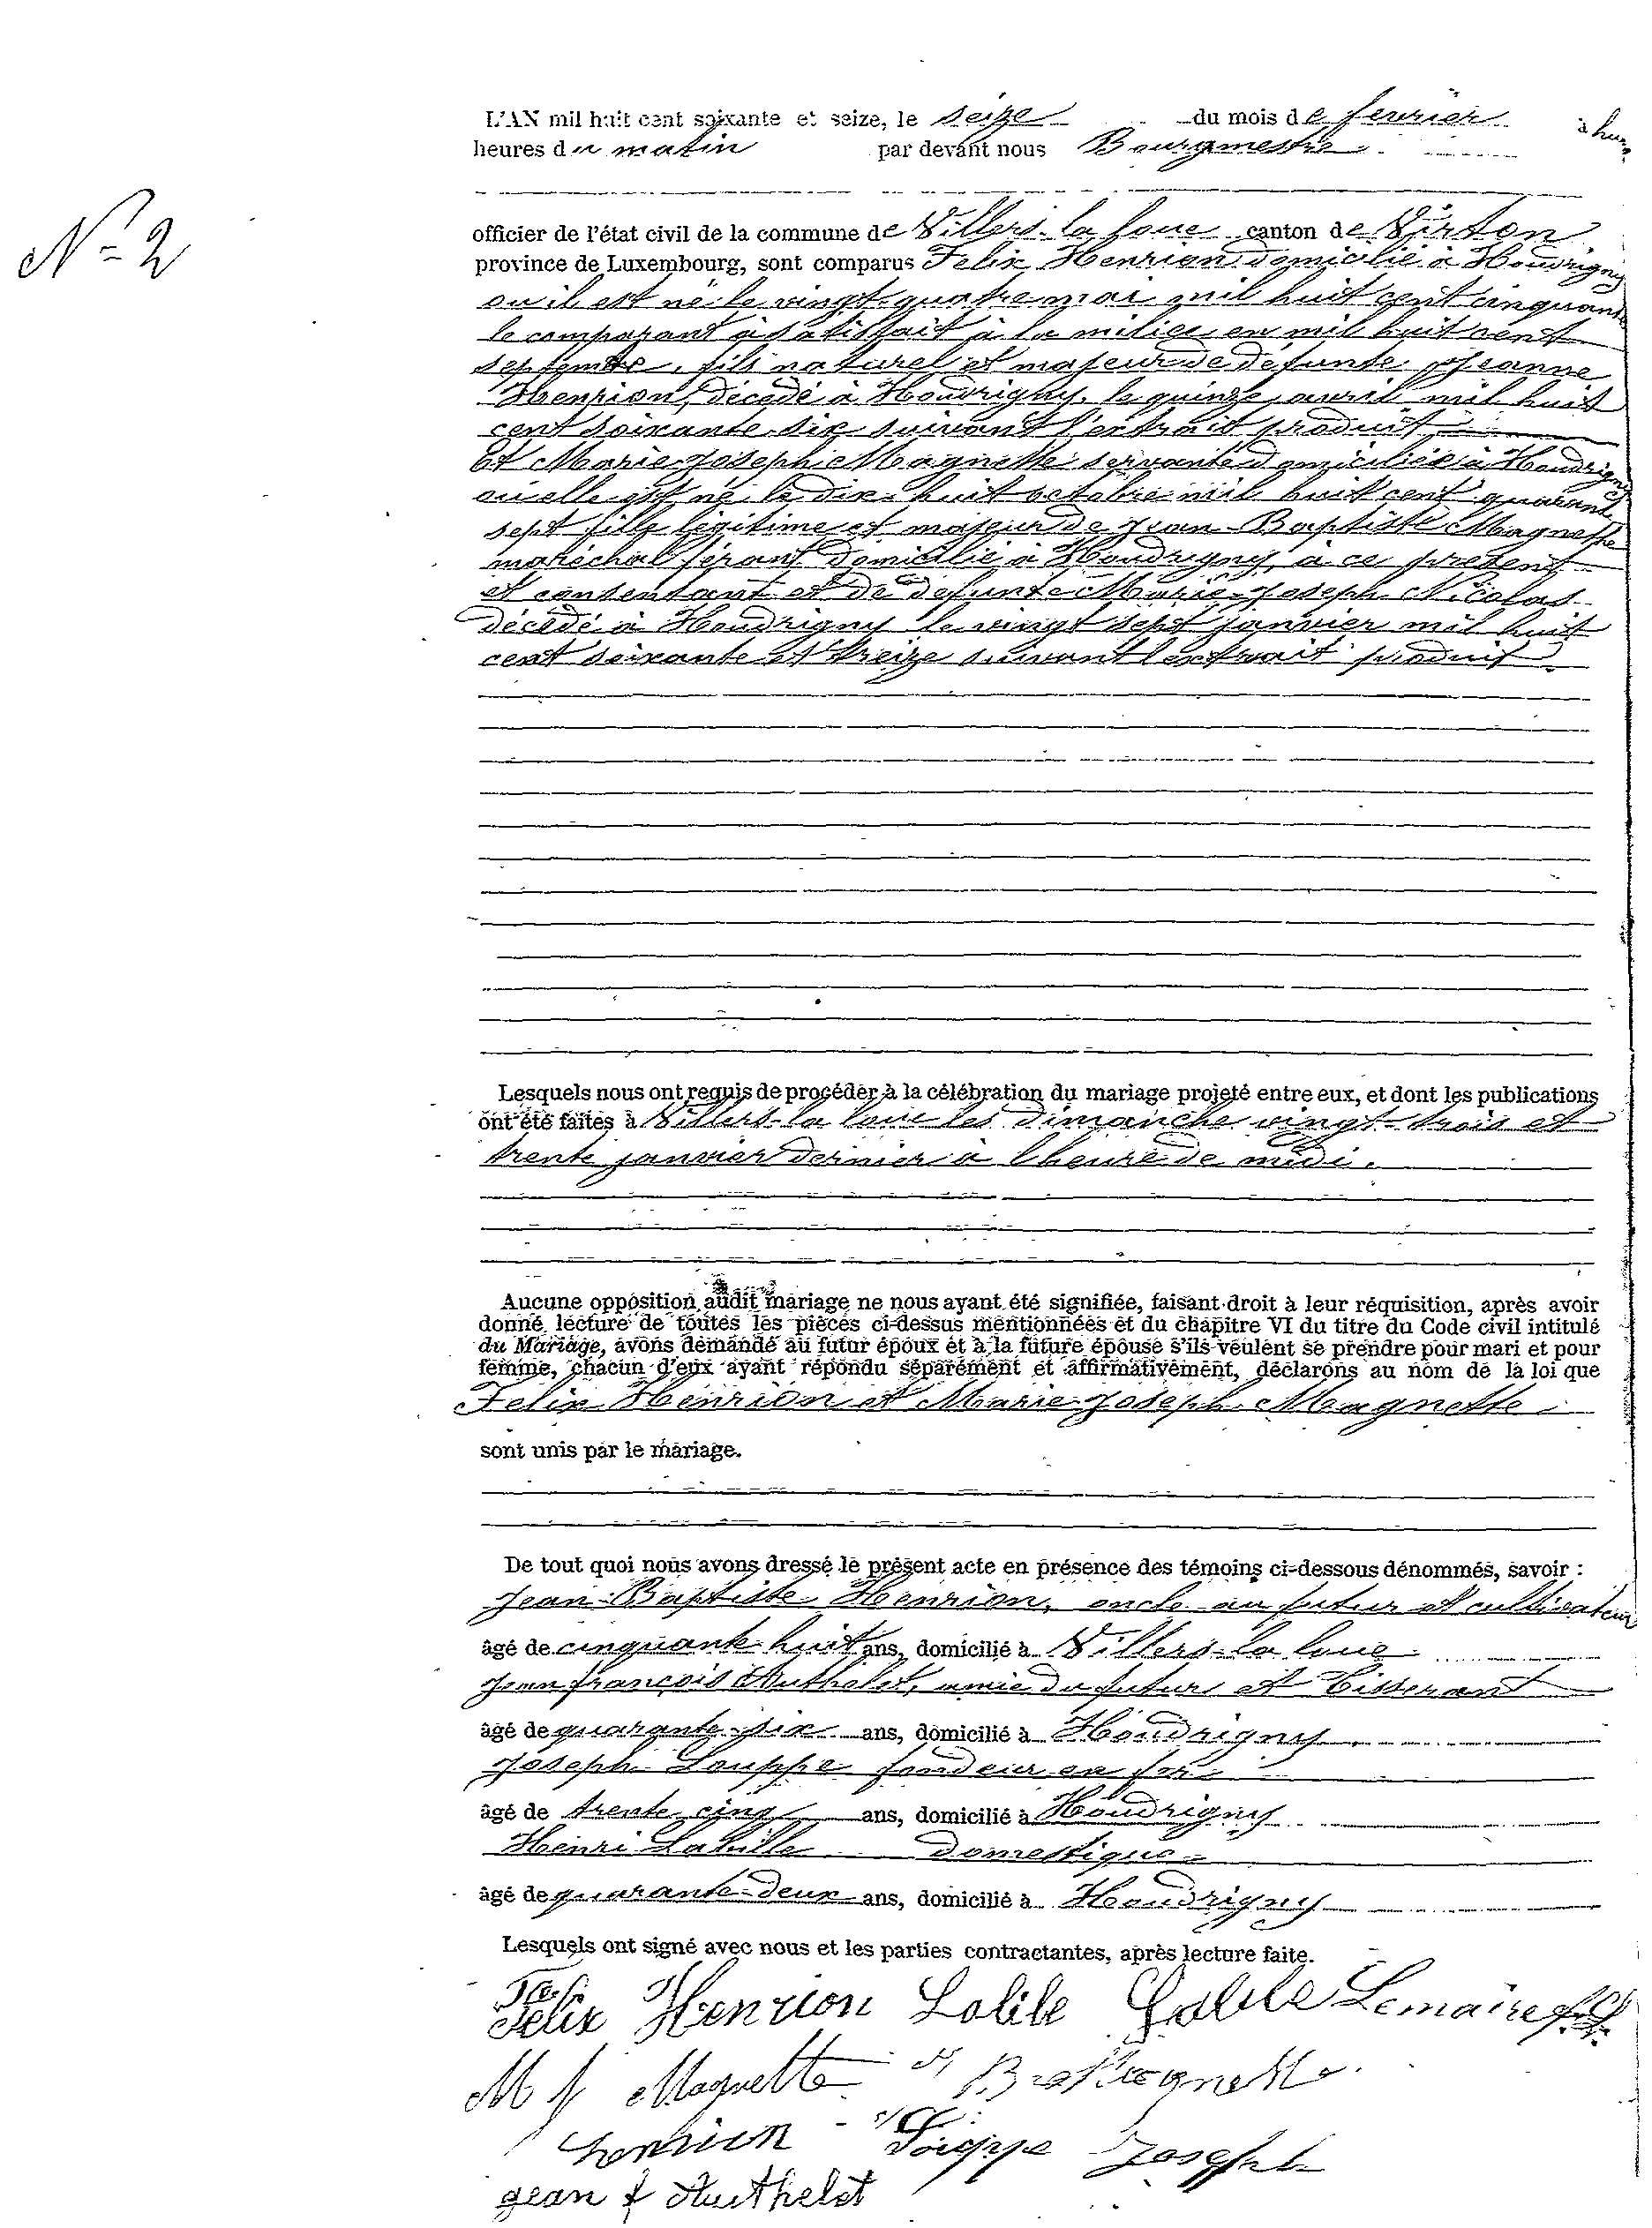 L'AN mil huit cent soixante et seize, le seize du mois de fevrier à huit
heures du matin par devant nous Bourgmestre
N° 2
officier de l'état civil de la commune de Villers-la-loue canton de Virton
province de Luxembourg, sont comparus Felix Henrion domicilié à Houdrigny
ou il est né le vingt-quatre mai mil huit cent cinquante
le comparant à satisfait à la milice en mil huit cent
septente, fils naturel et majeur de défunte Jeanne
Henrion, décédé à Houdrigny, le quinze avril mil huit
cent soixante-six suivant l'extrait produit
Et Marie-Joseph Magnette servante domiciliée à Houdrigny
ou elle est né le dix-huit octobre mil huit cent quarante
sept fille légitime et majeur de Jean-Baptiste Magnette
maréchal férant domicilié à Houdrigny, à ce présent
et consentant et de défunte Marie-Joseph Nicolas
décédé à Houdrigny le vingt sept janvier mil huit
cent soixante et treize suivant l'extrait produit
Lesquels nous ont requis de procéder à la célébration du mariage projeté entre eux, et dont les publications
ont été faites à Villers-la-loue les dimanche vingt-trois et
trente janvier dernier à l'heure de midi.
Aucune opposition audit mariage ne nous ayant été signifiée, faisant droit à leur réquisition, après avoir
donné lecture de toutes les pièces ci-dessus mentionnées et du chapitre VI du titre du Code civil intitulé
du Mariage, avons demandé au futur époux et à la future épouse s'ils veulent se prendre pour mari et pour
femme, chacun d'eux ayant répondu séparément et affirmativement, déclarons au nom de la loi que
Felix Henrion et Marie-Joseph Magnette
sont unis par le mariage.
De tout quoi nous avons dressé le présent acte en présence des témoins ci-dessous dénommés, savoir :
Jean-Baptiste Henrion, oncle au futur et cultivateur
âgé de cinquante-huit ans, domicilié à Villers-la-loue
Jean françois Authelet, amie du futur et Tisserant
âgé de quarante-six ans, domicilié à Houdrigny
Joseph Louppe fondeur en fer
âgé de trente-cinq ans, domicilié à Houdrigny
Henri Labille domestique
âgé de quarante-deux ans, domicilié à Houdrigny
Lesquels ont signé avec nous et les parties contractantes, après lecture faite.
Felix Henrion Lalile Lemaire
M J Magnette J B Magnette
henrion Louppe Joseph
jean f Authelet